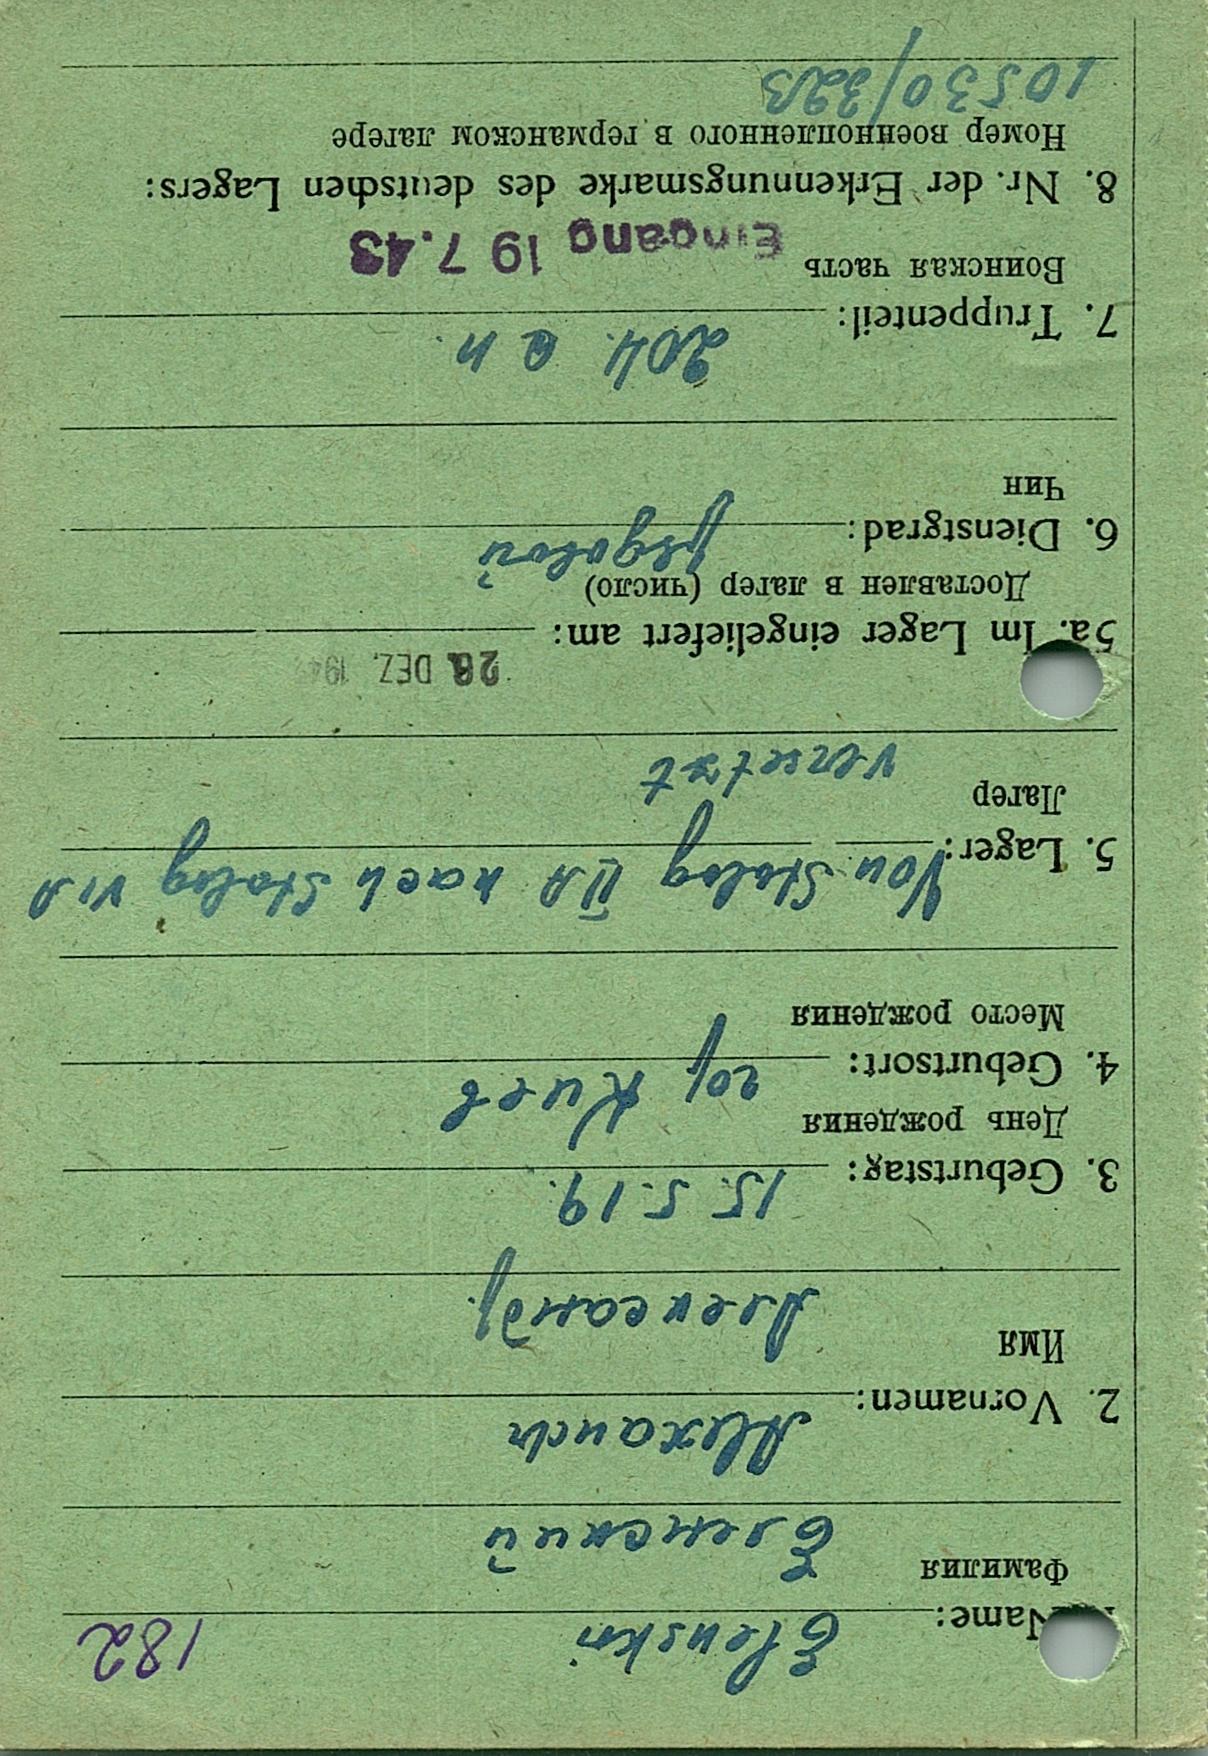 182
Name: Elenskii
Фамилия
Еленский
2. Vornamen: Alexandr
Имя
Александр.
3. Geburtstag: 15.5.19.
День рождения
4. Geburtsort: гор Киев
Место рождения
5. Lager: Von Stalag II A nach Stalag VI A
Лагер
versetzt
28. DEZ. 194
5a. Im Lager eingeliefert am:
Доставлен в лагер (число)
6. Dienstgrad: рядовой
Чин
7. Truppenteil: 204.
Воинская часть
Eingang 19 7.43
8. Nr. der Erkennungsmarke des deutschen Lagers:
Номер военнопленного в германском лагере
10530/32B